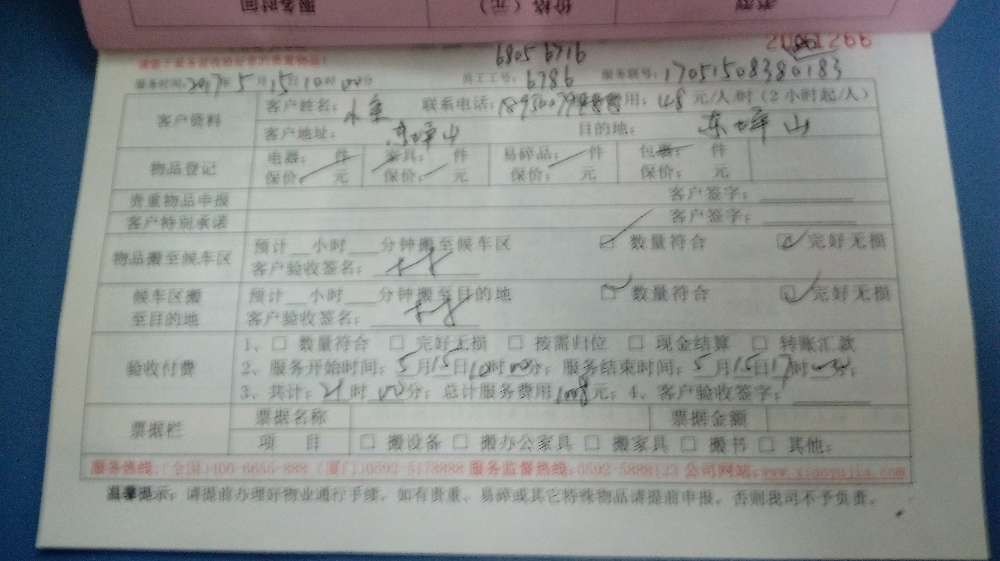 服务时间 价格（元） 类型
6805 6716
服务时间：2017年5月15日10时00分 员工工号：6786 服务联号：17051508380183
客户资料 客户姓名： 联系电话： 费用：48元/人/时（2小时起/人）
客户地址：东坪山 目的地：东坪山
物品登记 电器： 件 家具： 件 易碎品： 件 包裹： 件
保价： 元 保价： 元 保价： 元 保价： 元
贵重物品申报 客户签字：
客户特别承诺 客户签字：
物品搬至候车区 预计__小时___分钟搬至候车区 数量符合 完好无损
客户验收签名：
候车区搬至目的地 预计__小时___分钟搬至目的地 数量符合 完好无损
客户验收签名：
验收付费 1、□ 数量符合 □ 完好无损 □ 按需归位 □ 现金结算 □ 转账汇款
2、服务开始时间：5月15日10时00分；服务结束时间：5月15日17时00分；
3、共计：21时00分；总计服务费用1008元；4、客户验收签字：
票据栏 票据名称 票据金额
项 目 □ 搬设备 □ 搬办公家具 □ 搬家具 □ 搬书 □ 其他：
服务热线：(全国)400-6655-888 (厦门)0592-5178888 服务监督热线：0592-5888123 公司网站：
温馨提示：请提前办理好物业通行手续，如有贵重、易碎或其它特殊物品请提前申报，否则我司不予负责。